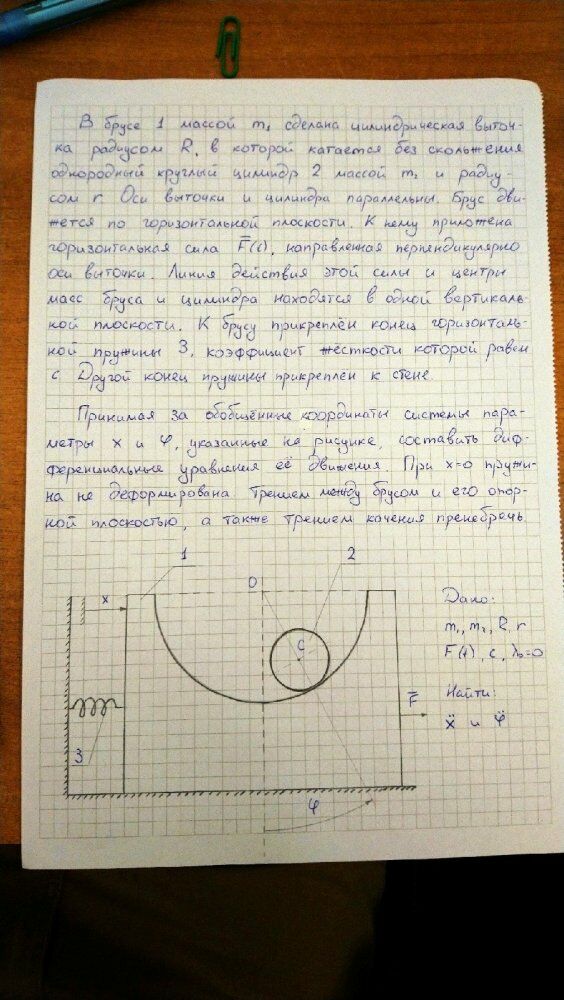 В брусе 1 массой m₁ сделана цилиндрическая выточ-
ка радиусом R, в которой катается без скольжения
однородный круглый цилиндр 2 массой m₂ и радиу-
сом r. Оси выточки и цилиндра параллельны. Брус дви-
жется по горизонтальной плоскости. К нему приложена
горизонтальная сила F̅(t), направленная перпендикулярно
оси выточки. Линия действия этой силы и центры
масс бруса и цилиндра находятся в одной вертикаль-
ной плоскости. К брусу прикреплён конец горизонталь-
ной пружины 3, коэффициент жёсткости которой равен
с Другой конец пружины прикреплён к стене.
Принимая за обобщённые координаты системы пара-
метры x и φ, указанные на рисунке, составить диф-
ференциальные уравнения её движения. При x=0 пружи-
на не деформирована. Трением между брусом и его опор-
ной плоскостью, а также трением качения пренебречь.
1
2
x
O
C
3
F̅
φ
Дано:
m₁, m₂, R, r
F(t), c, λ₀=0
Найти:
ẍ и φ̈